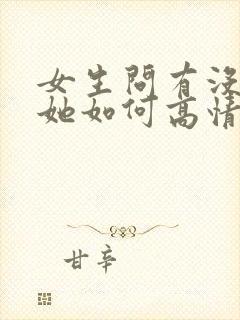 女生問有沒
她如何高情
甘辛